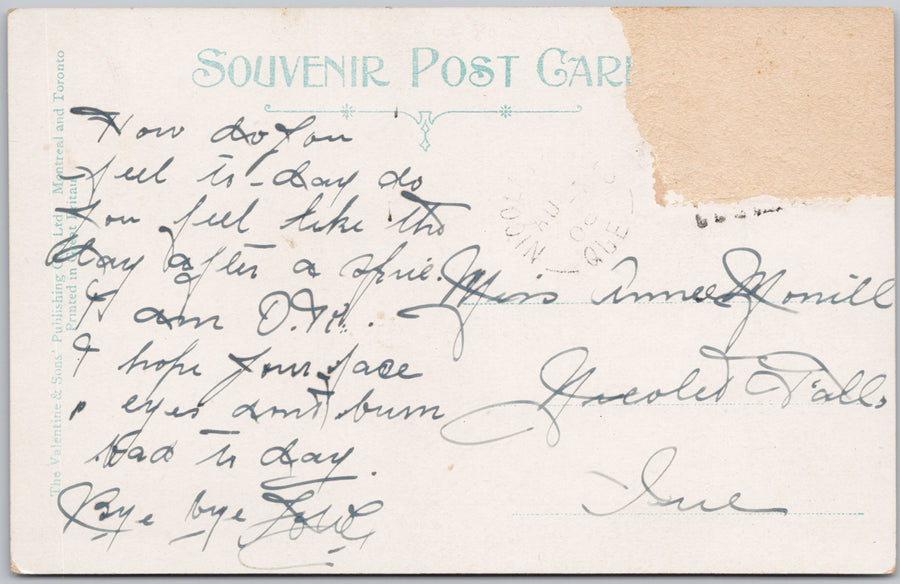 SOUVENIR POST CAR
The Valentine & Sons' Publishing Co. Ltd. Montreal and Toronto
Printed in Great Britain
How do you
feel to-day do
you feel like the
day after a spree.
I am O.K.
I hope your face
& eyes dont burn
bad to day.
Bye bye
AU
QUE
Miss Annie Morrill
Nicolet Falls
Que